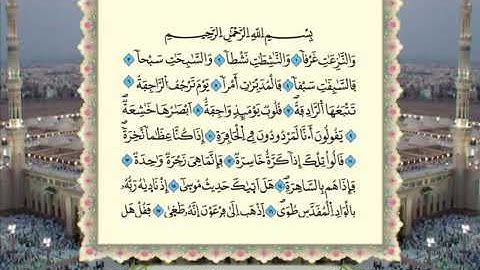 بِسْمِ اللَّهِ الرَّحْمَٰنِ الرَّحِيمِ
وَالنَّازِعَاتِ غَرْقًا ۝١ وَالنَّاشِطَاتِ نَشْطًا ۝٢ وَالسَّابِحَاتِ سَبْحًا ۝٣
فَالسَّابِقَاتِ سَبْقًا ۝٤ فَالْمُدَبِّرَاتِ أَمْرًا ۝٥ يَوْمَ تَرْجُفُ الرَّاجِفَةُ ۝٦
تَتْبَعُهَا الرَّادِفَةُ ۝٧ قُلُوبٌ يَوْمَئِذٍ وَاجِفَةٌ ۝٨ أَبْصَارُهَا خَاشِعَةٌ
۝٩ يَقُولُونَ أَءِنَّا لَمَرْدُودُونَ فِي الْحَافِرَةِ ۝١٠ أَءِذَا كُنَّا عِظَامًا نَّخِرَةً ۝١١
قَالُوا تِلْكَ إِذًا كَرَّةٌ خَاسِرَةٌ ۝١٢ فَإِنَّمَا هِيَ زَجْرَةٌ وَاحِدَةٌ ۝١٣
فَإِذَا هُم بِالسَّاهِرَةِ ۝١٤ هَلْ أَتَاكَ حَدِيثُ مُوسَىٰ ۝١٥ إِذْ نَادَاهُ رَبُّهُ
بِالْوَادِ الْمُقَدَّسِ طُوًى ۝١٦ اذْهَبْ إِلَىٰ فِرْعَوْنَ إِنَّهُ طَغَىٰ ۝١٧ فَقُلْ هَل